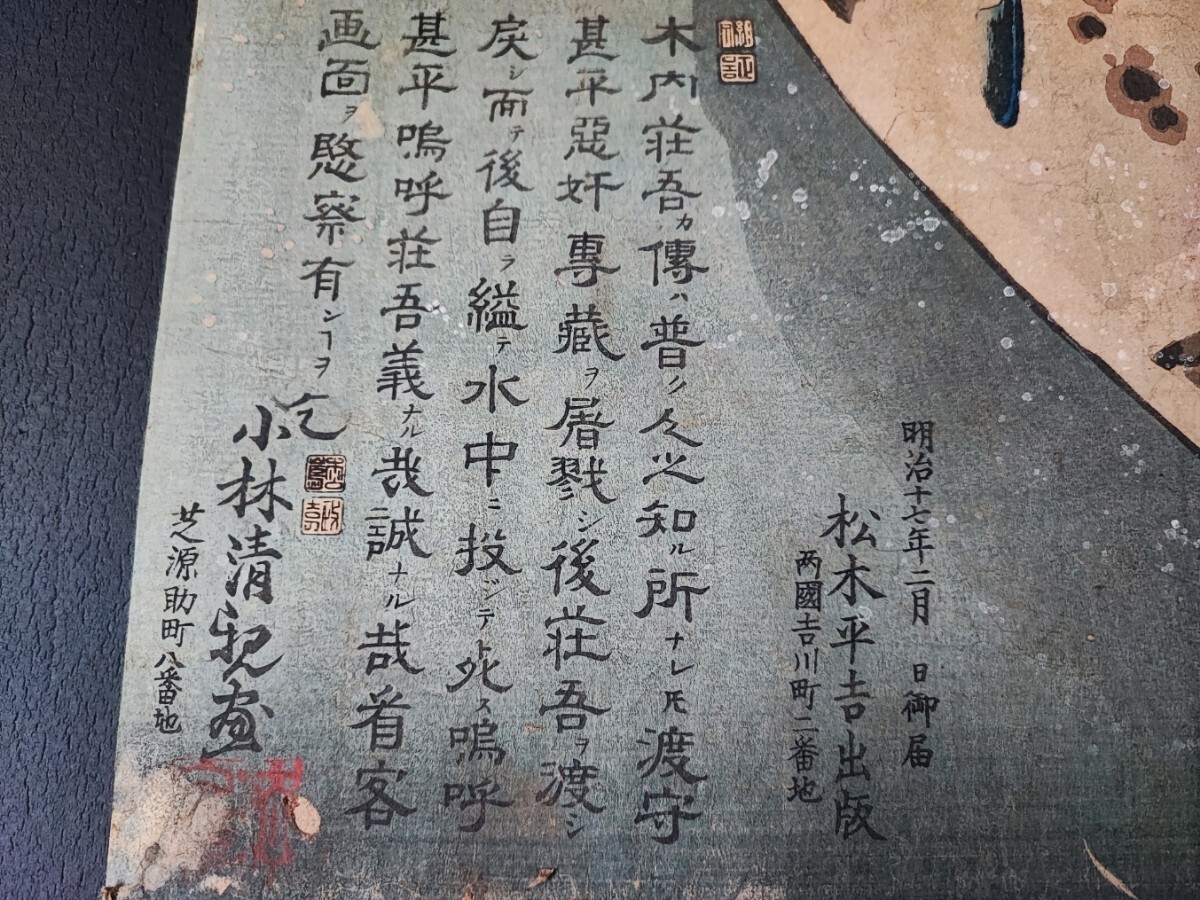 明治十七年二月　日御届
松木平吉出版
両國吉川町二番地
木内荘吾カ傳ハ普ク人之知ル所ナレ𪜈渡守
甚平惡奸專藏ヲ屠戮シ後荘吾ヲ渡シ
戻シ而テ後自ラ縊テ水中ニ投ジテ死ス嗚呼
甚平嗚呼荘吾義ナル哉誠ナル哉看客
画面ヲ愍察有ンヿヲ乞
小林清親画
芝源助町八番地